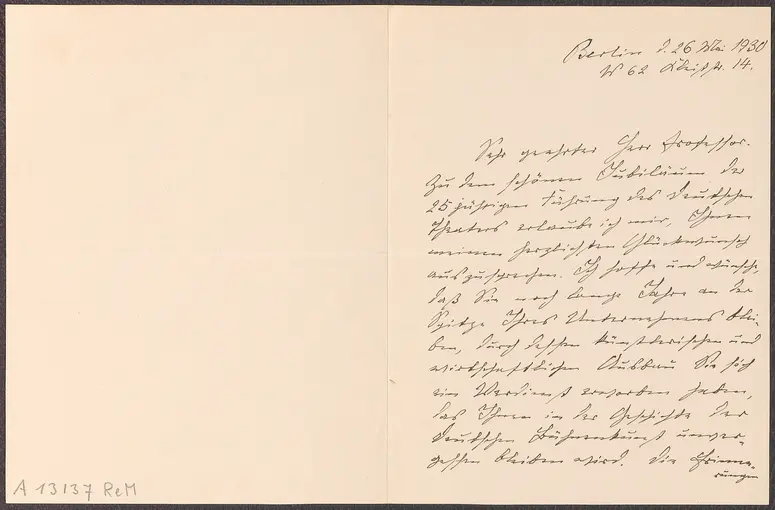 Berlin d. 26 Mai 1930
W 62 Kleiststr. 14.
Sehr geehrter Herr Professor.
Zu dem schönen Jubiläum der
25jährigen Führung des Deutschen
Theaters erlaube ich mir, Ihnen
meinen herzlichsten Glückwunsch
auszusprechen. Ich hoffe und wünsche,
daß Sie noch lange Jahre an der
Spitze Ihres Unternehmens blei-
ben, durch dessen künstlerischen und
wirtschaftlichen Ausbau Sie sich
ein Verdienst erworben haben,
das Ihnen in der Geschichte der
Deutschen Bühnenkunst unver-
gessen bleiben wird. Die Erinne-
rungen
A 13137 ReM